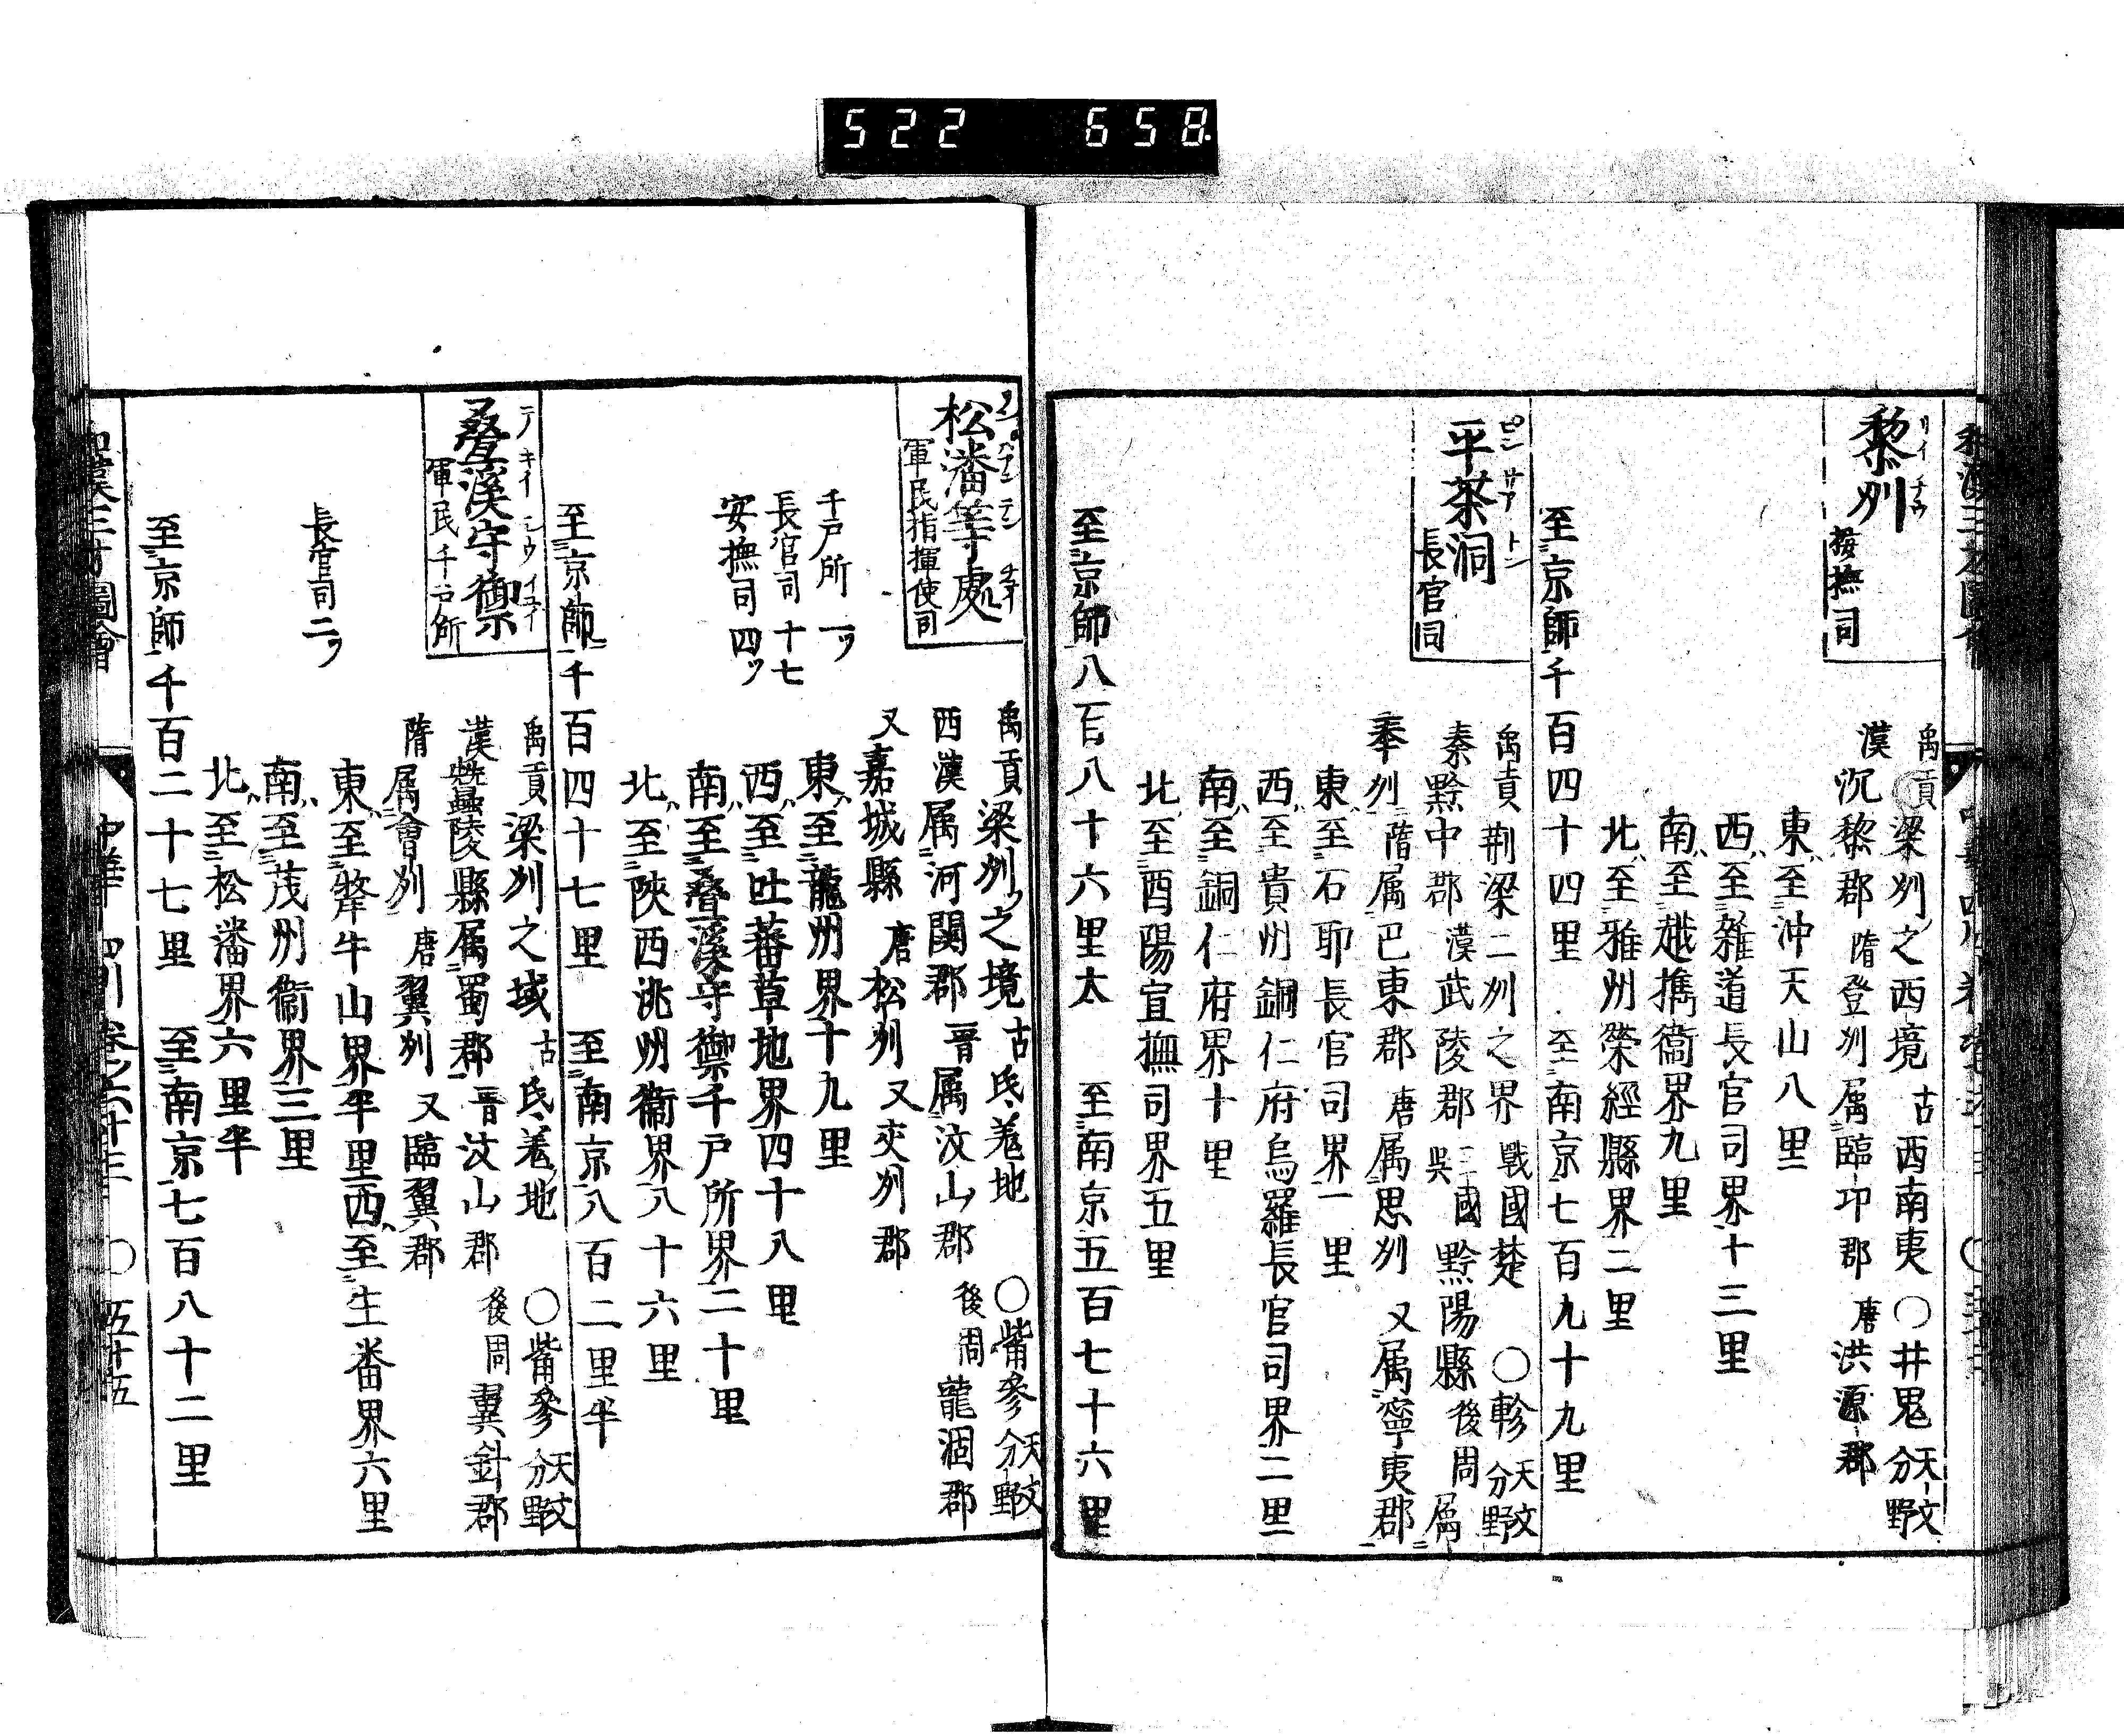 522 658
黎州
リイ チウ
按撫司
禹貢梁州之西境 古西南夷 ○井鬼 天文分野
漢沉黎郡 隋登州属臨卭郡 唐洪源郡
東至沖天山八里
西至雜道長官司界十三里
南至越擕衞界九里
北至雅州榮經縣界二里
至京師千百四十四里 至南京七百九十九里
平茶洞
ピン サア トン
長官司
禹貢荆梁二州之界 戰國楚 ○軫 天文分野
秦黔中郡 漢武陵郡 三國呉黔陽縣 後周属
奉州 隋属巴東郡 唐属思州 又属寧夷郡
東至石耶長官司界一里
西至貴州銅仁府烏羅長官司界二里
南至銅仁府界十里
北至酉陽宣撫司界五里
至京師八百八十六里太 至南京五百七十六里
松潘等處
軍民指揮使司
禹貢梁州之境 古氐羗地 ○觜參 天文分野
西漢属河関郡 晋属汶山郡 後周龍涸郡
又嘉城縣 唐松州 又交州郡
千戸所一ツ
東至龍州界十九里
長官司十七
西至吐蕃草地界四十八里
安撫司四ツ
南至疊溪守禦千戸所界二十里
北至陝西洮州衞界八十六里
至京師千百四十七里 至南京八百二里半
疊溪守禦
テキイ シウ イユイ
軍民千戸所
禹貢梁州之域 古氐羗地 ○觜參 天文分野
漢蠶陵縣属蜀郡 晋汶山郡 後周翼針郡
隋属會州 唐翼州 又臨翼郡
東至犛牛山界半里 西至生番界六里
長官司二ツ
南至茂州衞界三里
北至松潘界六里半
至京師千百二十七里 至南京七百八十二里
和漢三才圖會 中華 四川 卷之六十三 ○ 五十五